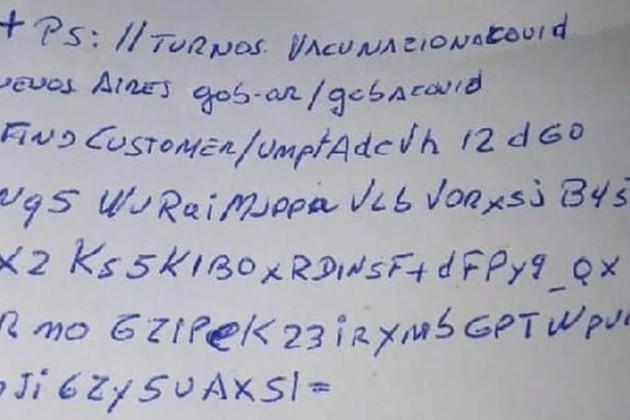 +PS://TURNOS VACUNACIONACOVID
UENOS AIRES gob-ar/gcbACOVID
FIND CUSTOMER/UmptAdcVh 12 dGO
Ng5 WURaiMJppa VLb VORxSj B45
X2 Ks5KIBOxRDINSF+dFPy9_QX
R mo GZIPeK23iRXMbGPTWpU
JJi6Zy5UAXSI=